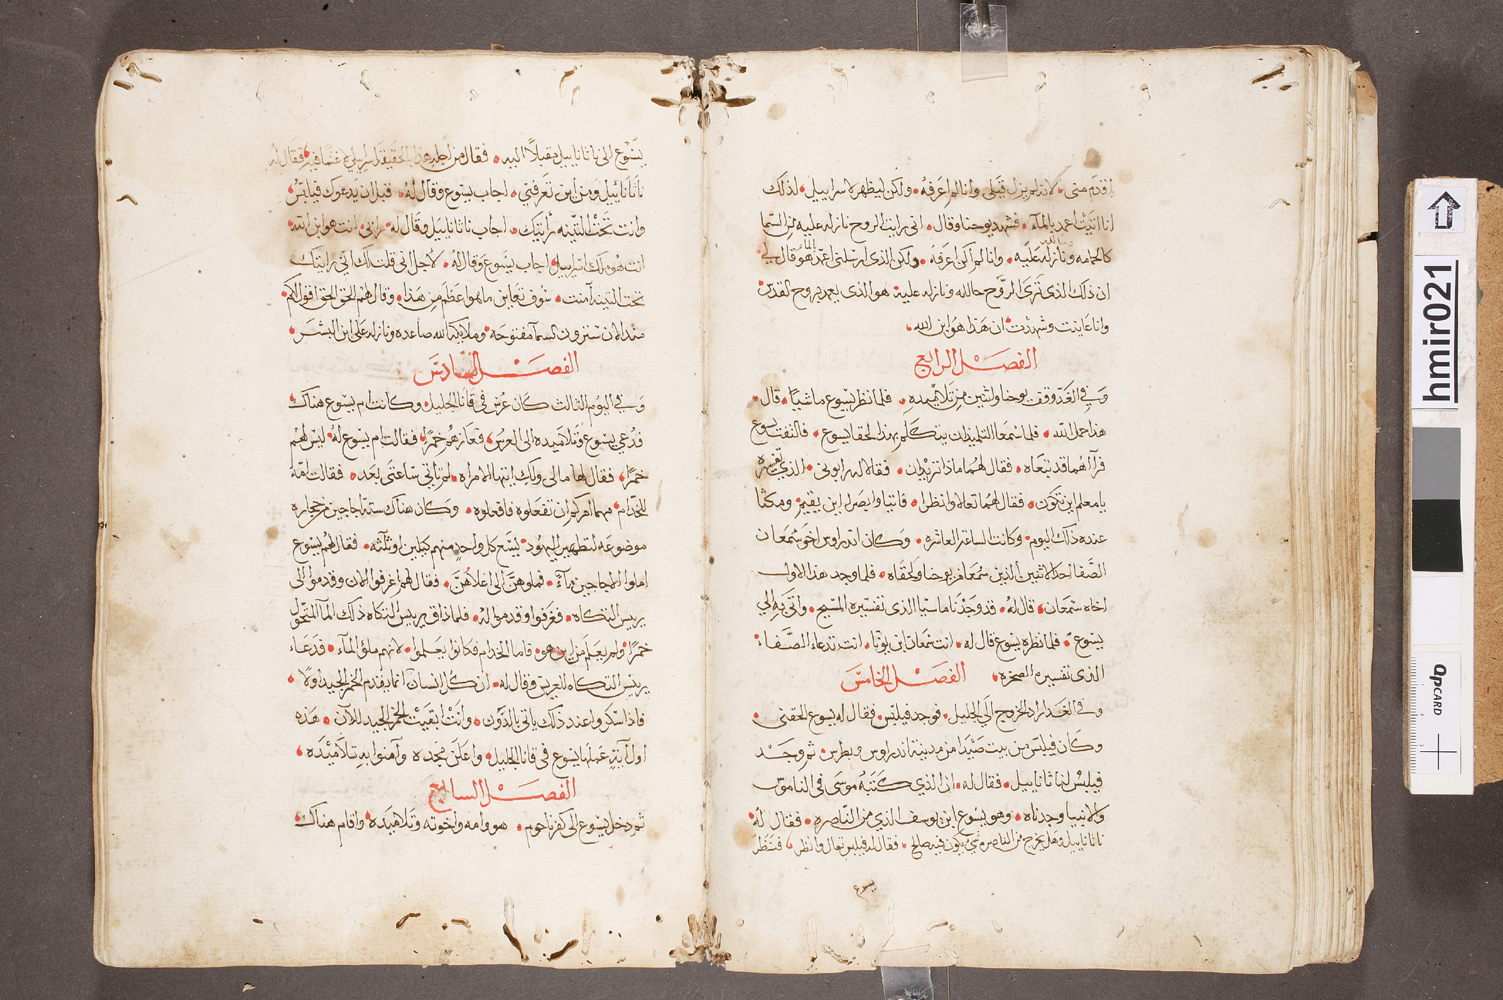 اقدم مني لانه لم يزل قبلي وانا لم اعرفه ولكن ليظهر لاسراييل لذلك
انا اتيت اعمد بالمآء فشهد يوحنا وقال اني رايت الروح نازله عليه من السما
كالحمامه ونازله عليه وانا لم اكن اعرفه ولكن الذي ارسلني اعمد بالماء هو قال لي
ان ذلك الذي ترى الروح حالله ونازله عليه هو الذي يعمد بروح القدس
وانا عاينت وشهدت ان هذا هو ابن الله
الفصل الرابع
وفي الغد وقف يوحنا واثنين من تلاميده فلما نظر يسوع ماشيًا قال
هذا حمل الله فلما سمعا التلميذان يتكلم بهذا لحقا يسوع فالتفت يسوع
فرآاهما قد تبعاه فقال لهما ماذا تريدان فقالا له رابوني الذي تفسيره
يا معلم اين تكون فقال لهما تعالا وانظرا فاتيا وابصرا اين يقيم ومكثا
عنده ذلك اليوم وكانت الساعة العاشره وكان اندراوس اخو سمعان
الصفا احد الاثنين الذين سمعا من يوحنا ولحقاه فلما وجد هذا الاول
اخاه سمعان قال له قد وجدنا ماسيا الذي تفسيره المسيح واتى به الي
يسوع فلما نظره يسوع قال له انت سمعان ابن يونا انت تدعا الصفاء
الذي تفسيره الصخره الفصل الخامس
وفي الغد اراد الخروج الي الجليل فوجد فيلبس فقال له يسوع الحقني
وكان فيلبس من بيت صيدا من مدينة اندراوس وبطرس ثم وجد
فيلبس لناثانابيل فقال له ان الذي كتبه موسى في الناموس
والانبيا وجدناه وهو يسوع ابن يوسف الذي من الناصره فقال له
ناثاناييل وهل يخرج من الناصره شي يكون فيه صالح فقال له فيلبس تعال وانظر فنظر
يسوع
يسوع الى ناثاناييل مقبلاً اليه فقال من اجله هذا بالحقيقه اسراييلي لا غش فيه فقال له
ناثاناييل ومن اين تعرفني اجاب يسوع وقال له قبل ان يدعوك فيلبس
وانت تحت التينه رأيتك اجاب ناثاناييل وقال له رابي انت هو ابن الله
انت هو ملك اسراييل اجاب يسوع وقال له لاجل اني قلت لك اني رايتك
تحت التينه آمنت سوف تعاين ما هو اعظم من هذا وقال لهم الحق الحق اقول لكم
منذ الان سترون السمآ مفتوحه وملايكه الله صاعده ونازله على ابن البشر
الفصل السادس
وفي اليوم الثالث كان عرس في قانا الجليل وكانت ام يسوع هناك
فدعي يسوع وتلاميده الى العرس فعازهم خمرًا فقالت ام يسوع له ليس لهم
خمرًا فقال لها مالي ولك ايتها الامراه لم تاتي ساعتي بعد فقالت امه
للخدام مهما امركم ان تفعلوه فافعلوه وكان هناك ستة اجاجين من حجاره
موضوعه لتطهير اليهود يسع كل واحد منهم كيلين او ثلثه فقال لهم يسوع
املوا الاجاجين مآءً فملوهنّ الى اعلاهنّ فقال لهم اغرفوا الان وقدموا الى
رييس التكاه فغرفوا وقدموا له فلما ذاق رييس التكاه ذلك المآ المتحول
خمرًا ولم يعلم من اين هو فاما الخدام فكانوا يعلموا لانهم ملوا المآء فدعا
رييس التكاه العريس وقال له ان كل انسان انما يقدم الخمر الجيد اولًا
فاذا سكروا عند ذلك ياتي بالدون وانت ابقيت الخمر الجيد للآن هذه
اول آيةٍ عملها يسوع في قانا الجليل واعلن مجده وآمنوا به تلاميده
الفصل السابع
ثم دخل يسوع الى كفرناحوم هو وامه واخوته وتلاميده واقام هناك
hmir021
QPCARD